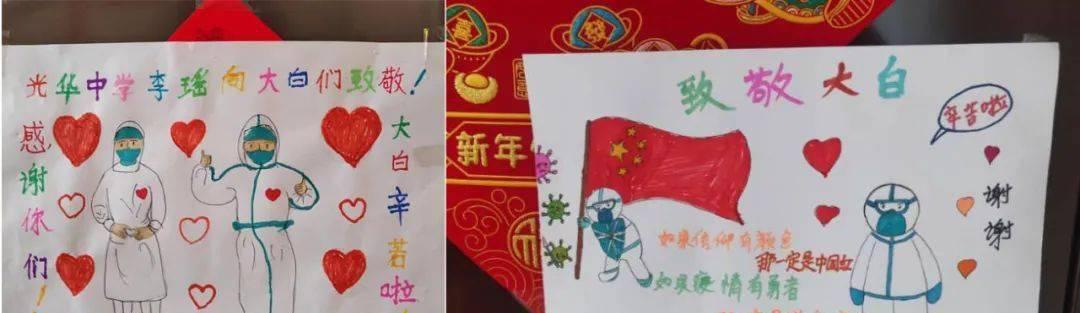 光华中学李瑶向大白们致敬!
感谢你们!
大白辛苦啦
新年
致敬大白
辛苦啦
谢谢
如果信仰有颜色
那一定是中国红
如果疫情有勇者